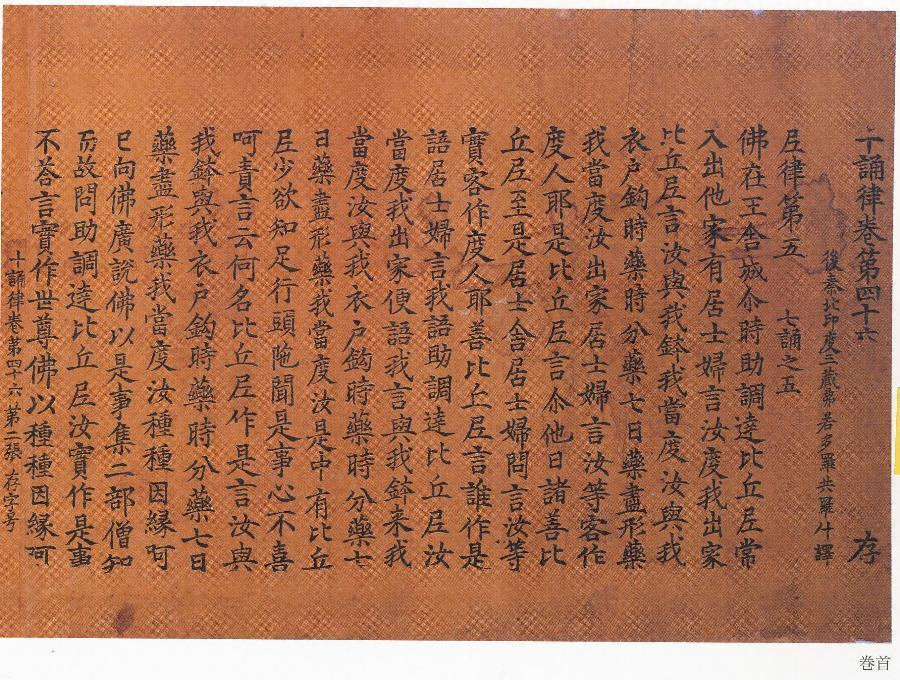 十誦律卷第四十六 存
後秦北印度三藏弗若多羅共羅什譯
尼律第五 七誦之五
佛在王舍城尒時助調達比丘尼常
入出他家有居士婦言汝度我出家
比丘尼言汝與我鉢我當度汝與我
衣戶鉤時藥時分藥七日藥盡形藥
我當度汝出家居士婦言汝等客作
度人耶是比丘尼言尒他日諸善比
丘尼至是居士舍居士婦問言汝等
實客作度人耶善比丘尼言誰作是
語居士婦言我語助調達比丘尼汝
當度我出家便語我言與我鉢来我
當度汝與我衣戶鉤時藥時分藥七
日藥盡形藥我當度汝是中有比丘
尼少欲知足行頭陁聞是事心不喜
呵責言云何名比丘尼作是言汝與
我鉢與我衣戶鉤時藥時分藥七日
藥盡形藥我當度汝種種因緣呵
已向佛廣說佛以是事集二部僧知
而故問助調達比丘尼汝實作是事
不荅言實作世尊佛以種種因緣呵
十誦律卷第四十六 第二張 存字号
巻首